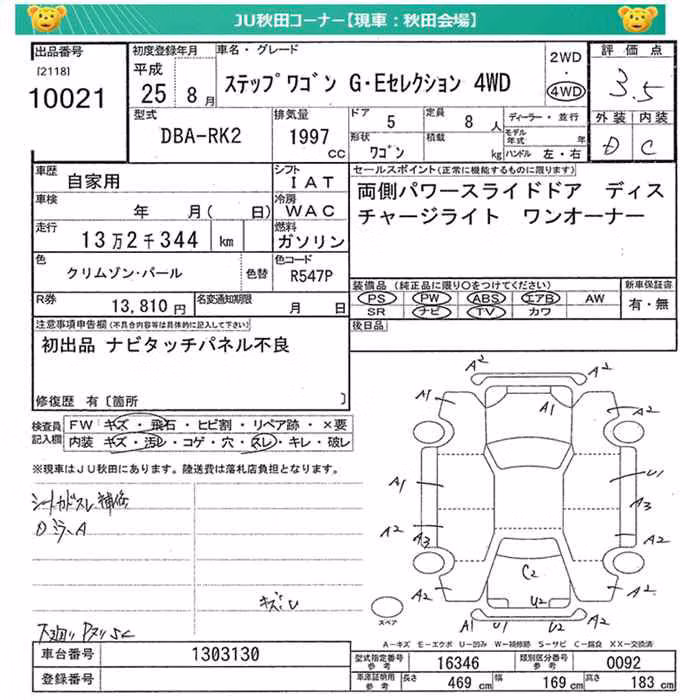 JU秋田コーナー【現車：秋田会場】
出品番号
[2118]
10021
初度登録年月
平成
25 8月
車名・グレード
ステップワゴン G・Eセレクション 4WD
2WD
・
4WD
評価点
3.5
外装 内装
D C
型式
DBA-RK2
排気量
1997 cc
ドア 5
定員 8 人
形状 ワゴン
積載 kg
ディーラー・並行
モデル年式 年
ハンドル 左・右
車歴 自家用
シフト IAT
車検 年 月( 日)
冷房 WAC
走行 13万2千344 km
燃料 ガソリン
色 クリムゾン・パール
色替
色コード R547P
R券 13,810円
名変通知期限 月 日
セールスポイント(正常に機能するものに限ります)
両側パワースライドドア ディス
チャージライト ワンオーナー
装備品 (純正品に限り〇をつけてください)
PS PW ABS エアB AW
SR ナビ TV カワ
新車保証書
有・無
後日品
注意事項申告欄(不具合内容等は具体的に記入して下さい)
初出品 ナビタッチパネル不良
修復歴 有〔箇所 〕
検査員
記入欄
FW キズ・飛石・ヒビ割・リペア跡・×要
内装 キズ・汚レ・コゲ・穴・スレ・キレ・破レ
※現車はJU秋田にあります。陸送費は落札店負担となります。
シートカドスレ 補修
Dミラ-A
キズ・U
A2 A2
A1 A1 A2
A1 U1
A2 A3 A3 A2
C2
A2 U2 A2
A1 U1 U2 A2
スペア
A－キズ M－エクボ U－凹み W－補修跡 S－サビ C－腐食 XX－交換済
車台番号 1303130
登録番号
型式指定番号 参考 16346
類別区分番号 参考 0092
車庫証明用 参考 長さ 469 cm 幅 169 cm 高さ 183 cm